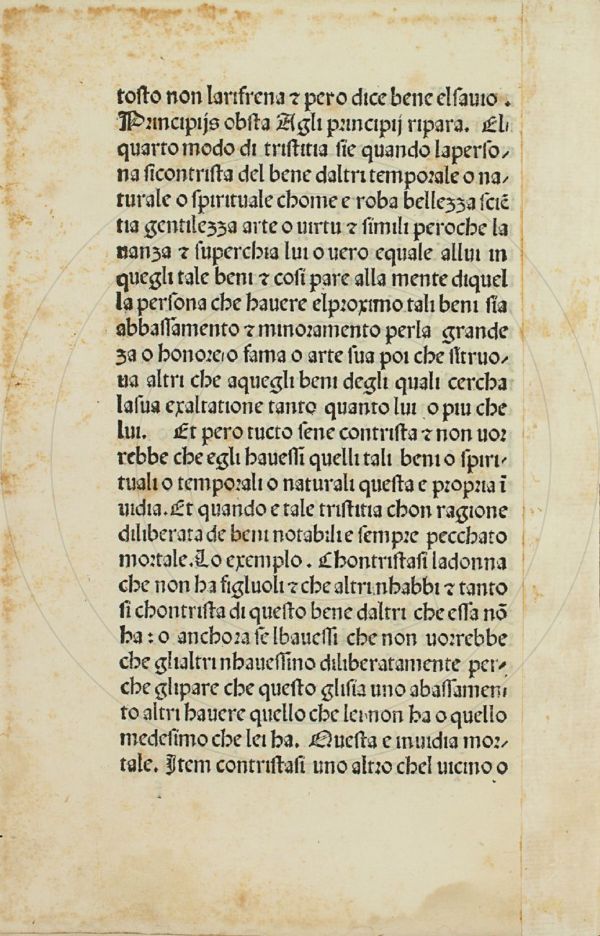 tosto non larifrena ⁊ pero dice bene elsauio .
Principijs obsta Agli principij ripara. El
quarto modo di tristitia sie quando laperso⸗
na sicontrista del bene daltri temporale o na⸗
turale o spirituale chome e roba bellezza sciẽ
tia gentilezza arte o uirtu ⁊ simili peroche la
uanza ⁊ superchia lui o uero equale allui in
quegli tale beni ⁊ cosi pare alla mente diquel
la persona che hauere elproximo tali beni sia
abbassamento ⁊ minoramento perla grande
za o honore o fama o arte sua poi che struo⸗
ua altri che aquegli beni degli quali cercha
lasua exaltatione tanto quanto lui o piu che
lui. Et pero tucto sene contrista ⁊ non uor
rebbe che egli hauessi quelli tali beni o spiri⸗
tuali o temporali o naturali questa e propria ĩ
uidia. Et quando e tale tristitia chon ragione
diliberata de beni notabili e sempre pecchato
mortale. Lo exemplo . Chontristasi ladonna
che non ha figluoli ⁊ che altrinhabbi ⁊ tanto
si chontrista di questo bene daltri che essa nõ
ha : o anchora se lhauessi che non uorrebbe
che glialtri nhauessino diliberatamente per⸗
che glipare che questo glisia uno abassamen
to altri hauere quello che lei non ha o quello
medesimo che lei ha. Questa e inuidia mor⸗
tale. Item contristasi uno altro chel uicino o